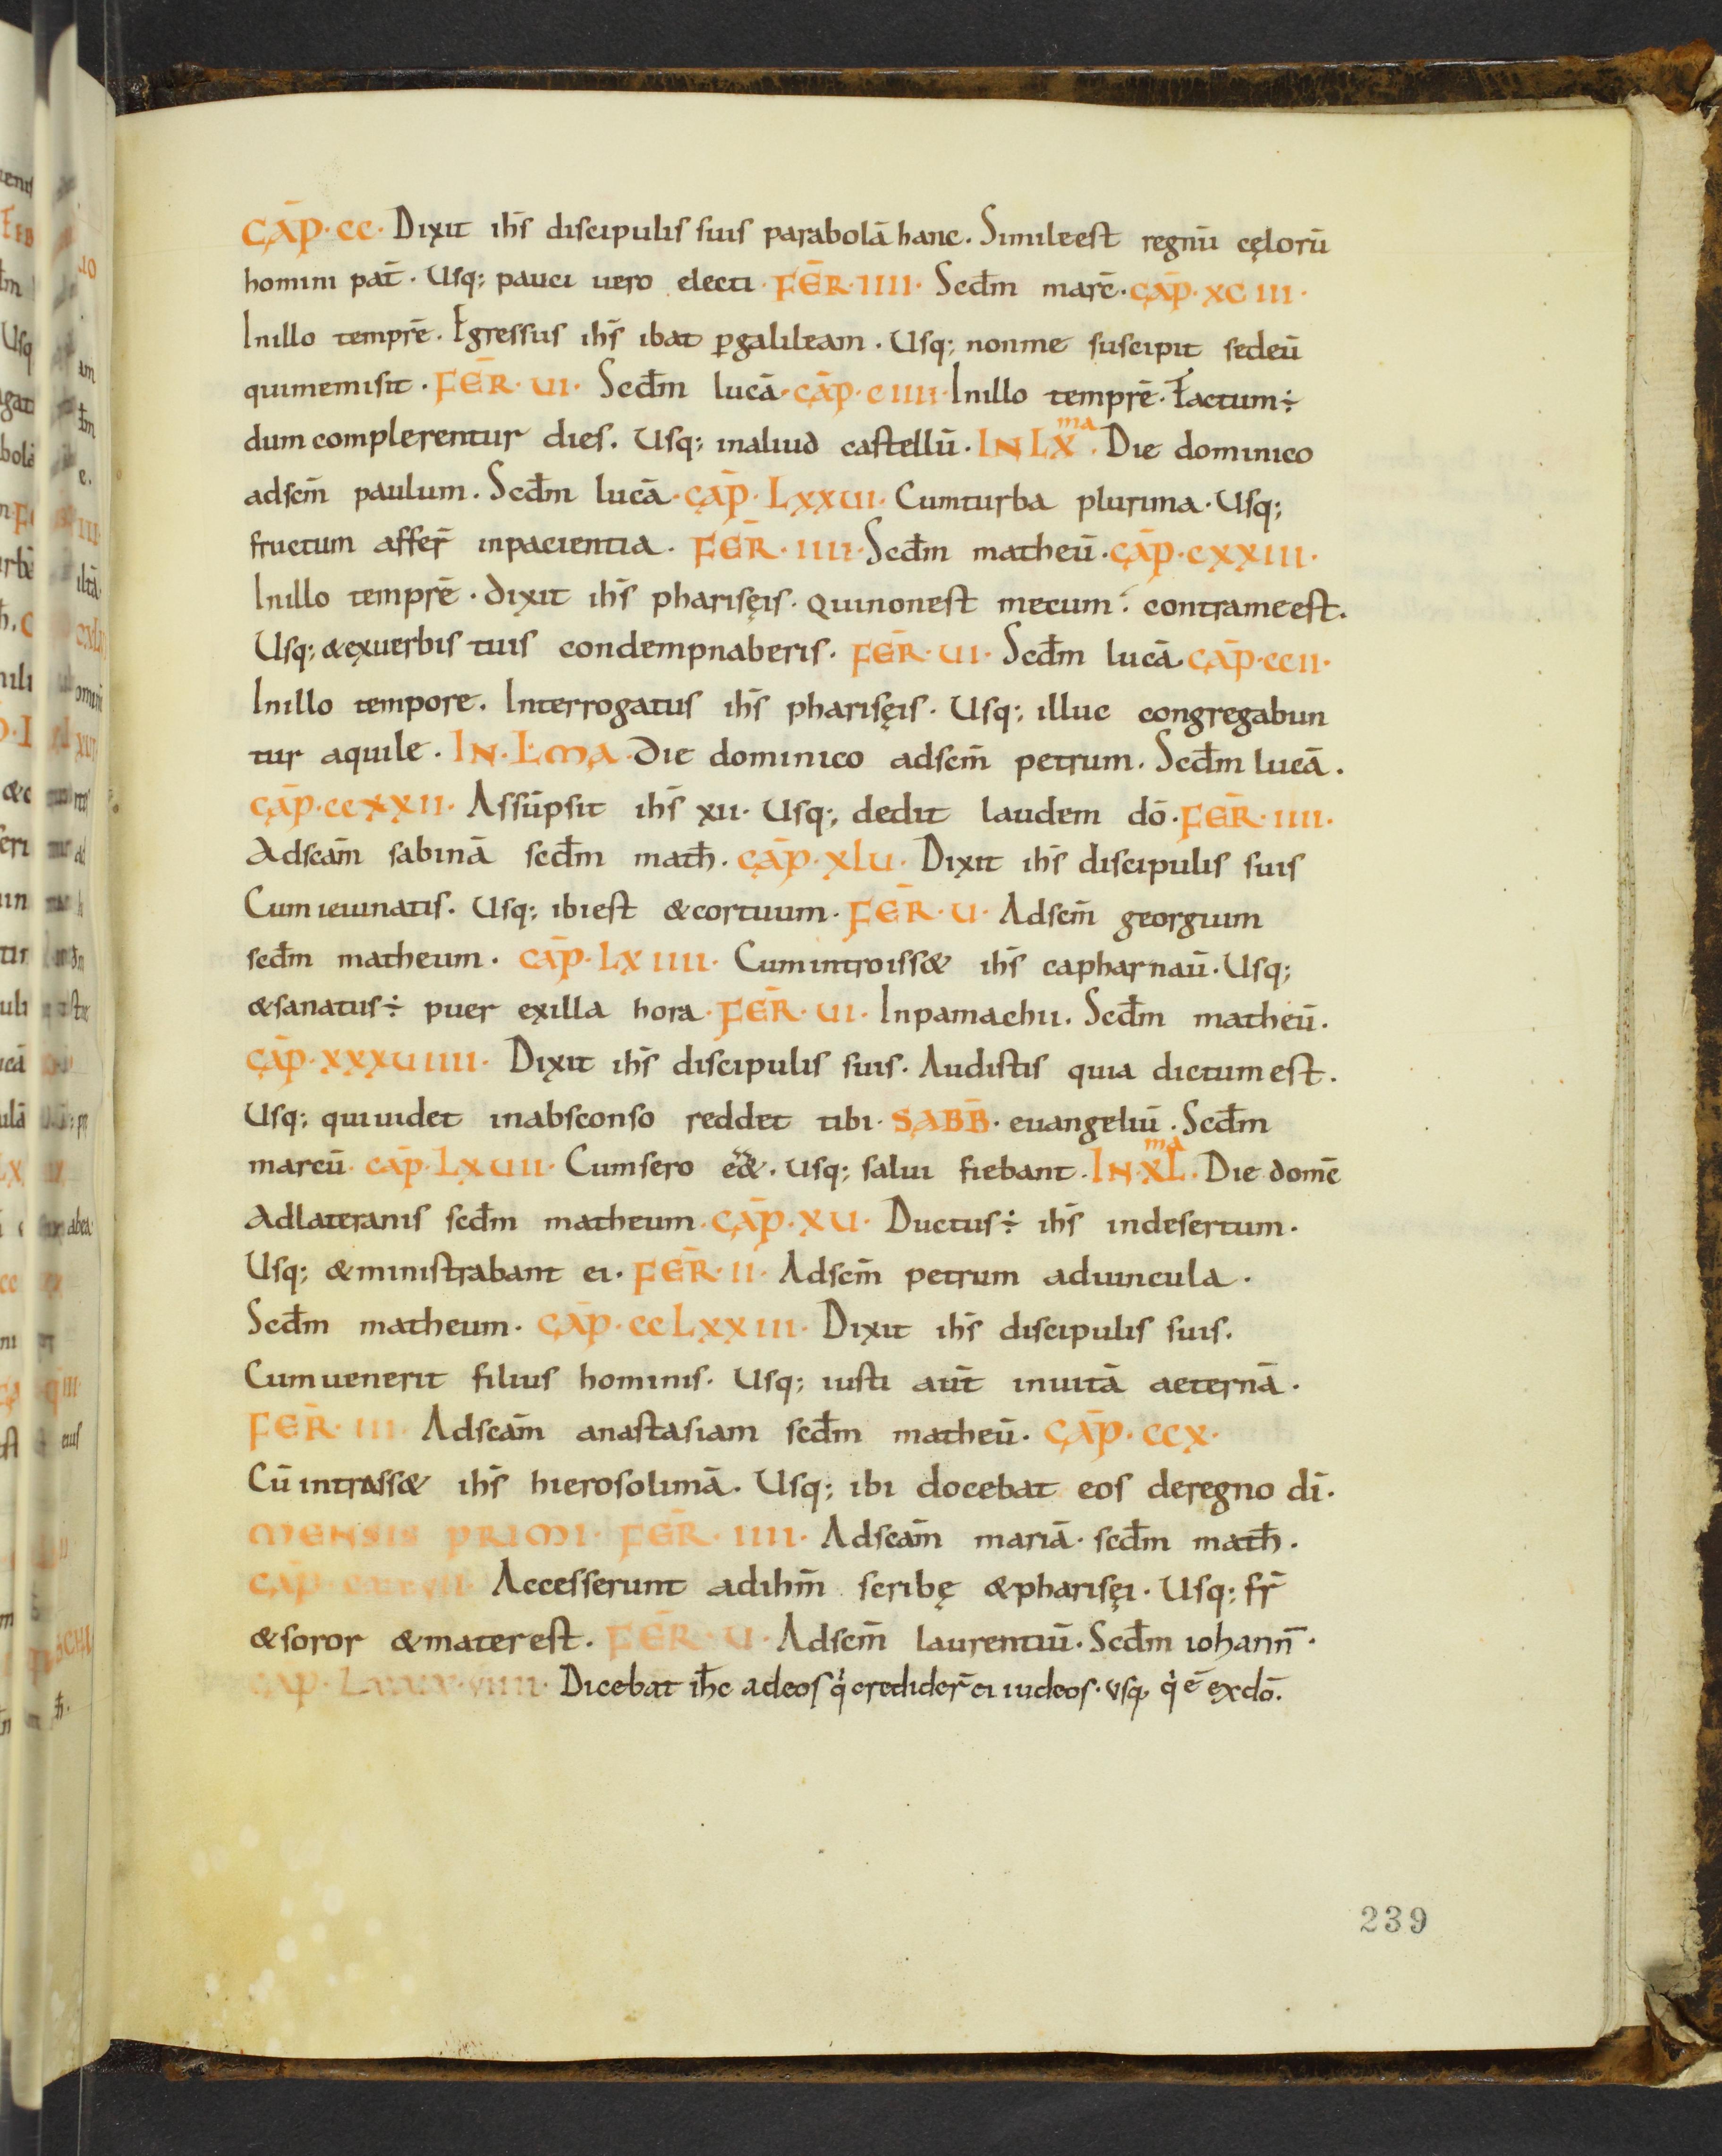 CAP̄·CC· Dixit ih̄s discipulis suis parabolā hanc. Simileest regnū cęlorū
homini pat̄· Usq; pauci uero electi· FER̄·IIII· Scd̄m marc̄· CAP̄·XCIII·
Inillo temprē· Egressus ih̄s ibat ꝑgalileam· Usq; nonme suscipit sedeū
quimemisit· FER̄·UI· Scd̄m lucā· CAP̄·CIIII· Inillo temprē· Factum÷
dum complerentur dies. Usq; inaliud castellū· IN LXma· Die dominico
adscm̄ paulum. Scd̄m lucā· CAP̄·LXXUI· Cumturba plurima· Usq;
fructum affer̄ inpacientia. FER̄·IIII· Scd̄m matheū· CAP̄·CXXIII·
Inillo temprē· dixit ih̄s pharisęis· Quinonest mecum· contrameest.
Usq; &exuerbis tuis condempnaberis. FER̄·UI· Scd̄m lucā CAP̄·CCII·
Inillo tempore. Interrogatus ih̄s pharisęis· Usq; illuc congregabun
tur aquile· IN·LMA· Die dominico adscm̄ petrum. Scd̄m lucā.
CAP̄·CCXXII· Assūpsit ih̄s xii· Usq; dedit laudem dō· FER̄·IIII·
Adscam̄ sabinā scd̄m math̄. CAP̄·XLU· Dixit ih̄s discipulis suis
Cum ieiunatis. Usq; ibiest &cortuum· FER̄·U· Adscm̄ georgium
scd̄m matheum· CAP̄·LXIIII· Cumintroiss& ih̄s capharnaū· Usq;
&sanatus÷ puer exilla hora· FER̄·UI· Inpamachii. Scd̄m matheū.
CAP̄·XXXUIIII· Dixit ih̄s discipulis suis. Audistis quia dictumest.
Usq; quiuidet inabsconso reddet tibi· SABB̄· euangeliū· Scd̄m
marcū· CAP̄·LXUII· Cumsero Usq; salui fiebant· IN·XLma· Die domc̄
Adlateranis scd̄m matheum· CAP̄·XU· Ductus÷ ih̄s indesertum·
Usq; &ministrabant ei· FER̄·II· Adscm̄ petrum aduincula·
Scd̄m matheum· CAP̄·CCLXXIII· Dixit ih̄s discipulis suis.
Cumuenerit filius hominis· Usq; iusti aūt inuitā aeternā·
FER̄·III· Adscam̄ anastasiam scd̄m matheū· CAP̄·CCX·
Cū intrass& ih̄s hierosolimā· Usq; ibi docebat eos deregno dī·
MENSIS PRIMI· FER̄·IIII· Adscam̄ mariā· scd̄m math̄·
CAP̄ Accesserunt adihm̄ scribę &pharisęi· Usq; fr̄
&soror &materest. FER̄·U· Adscm̄ laurentiū· Scd̄m iohann̄·
CAP· Dicebat ih̄c adeos q̇ credider̄ ei iudeos· usq; q̇ ē exdō.
239